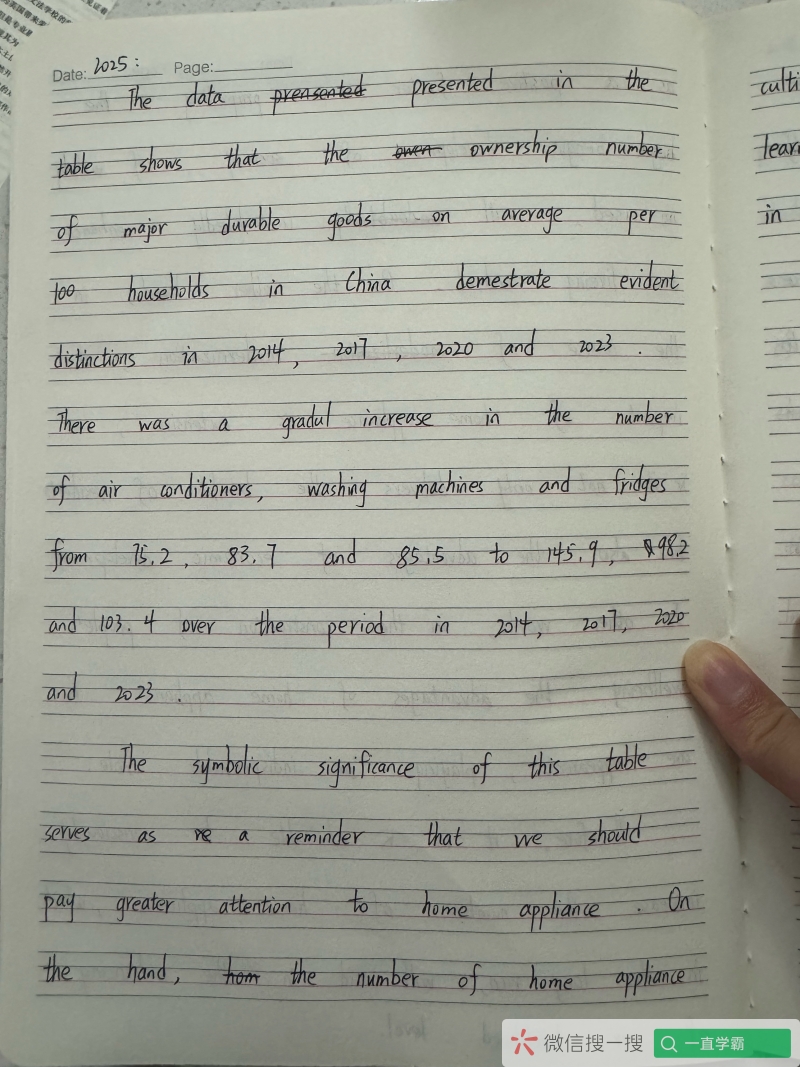 Date: 2025: Page:
The data prensented presented in the
table shows that the owen ownership number
of major durable goods on average per
100 households in China demestrate evident
distinctions in 2014, 2017, 2020 and 2023.
There was a gradul increase in the number
of air conditioners, washing machines and fridges
from 75.2, 83.7 and 85.5 to 145.9, 98.2
and 103.4 over the period in 2014, 2017, 2020
and 2023.
The symbolic significance of this table
serves as re a reminder that we should
pay greater attention to home appliance. On
the hand, hom the number of home appliance
culti
lear
in
微信搜一搜
一直学霸